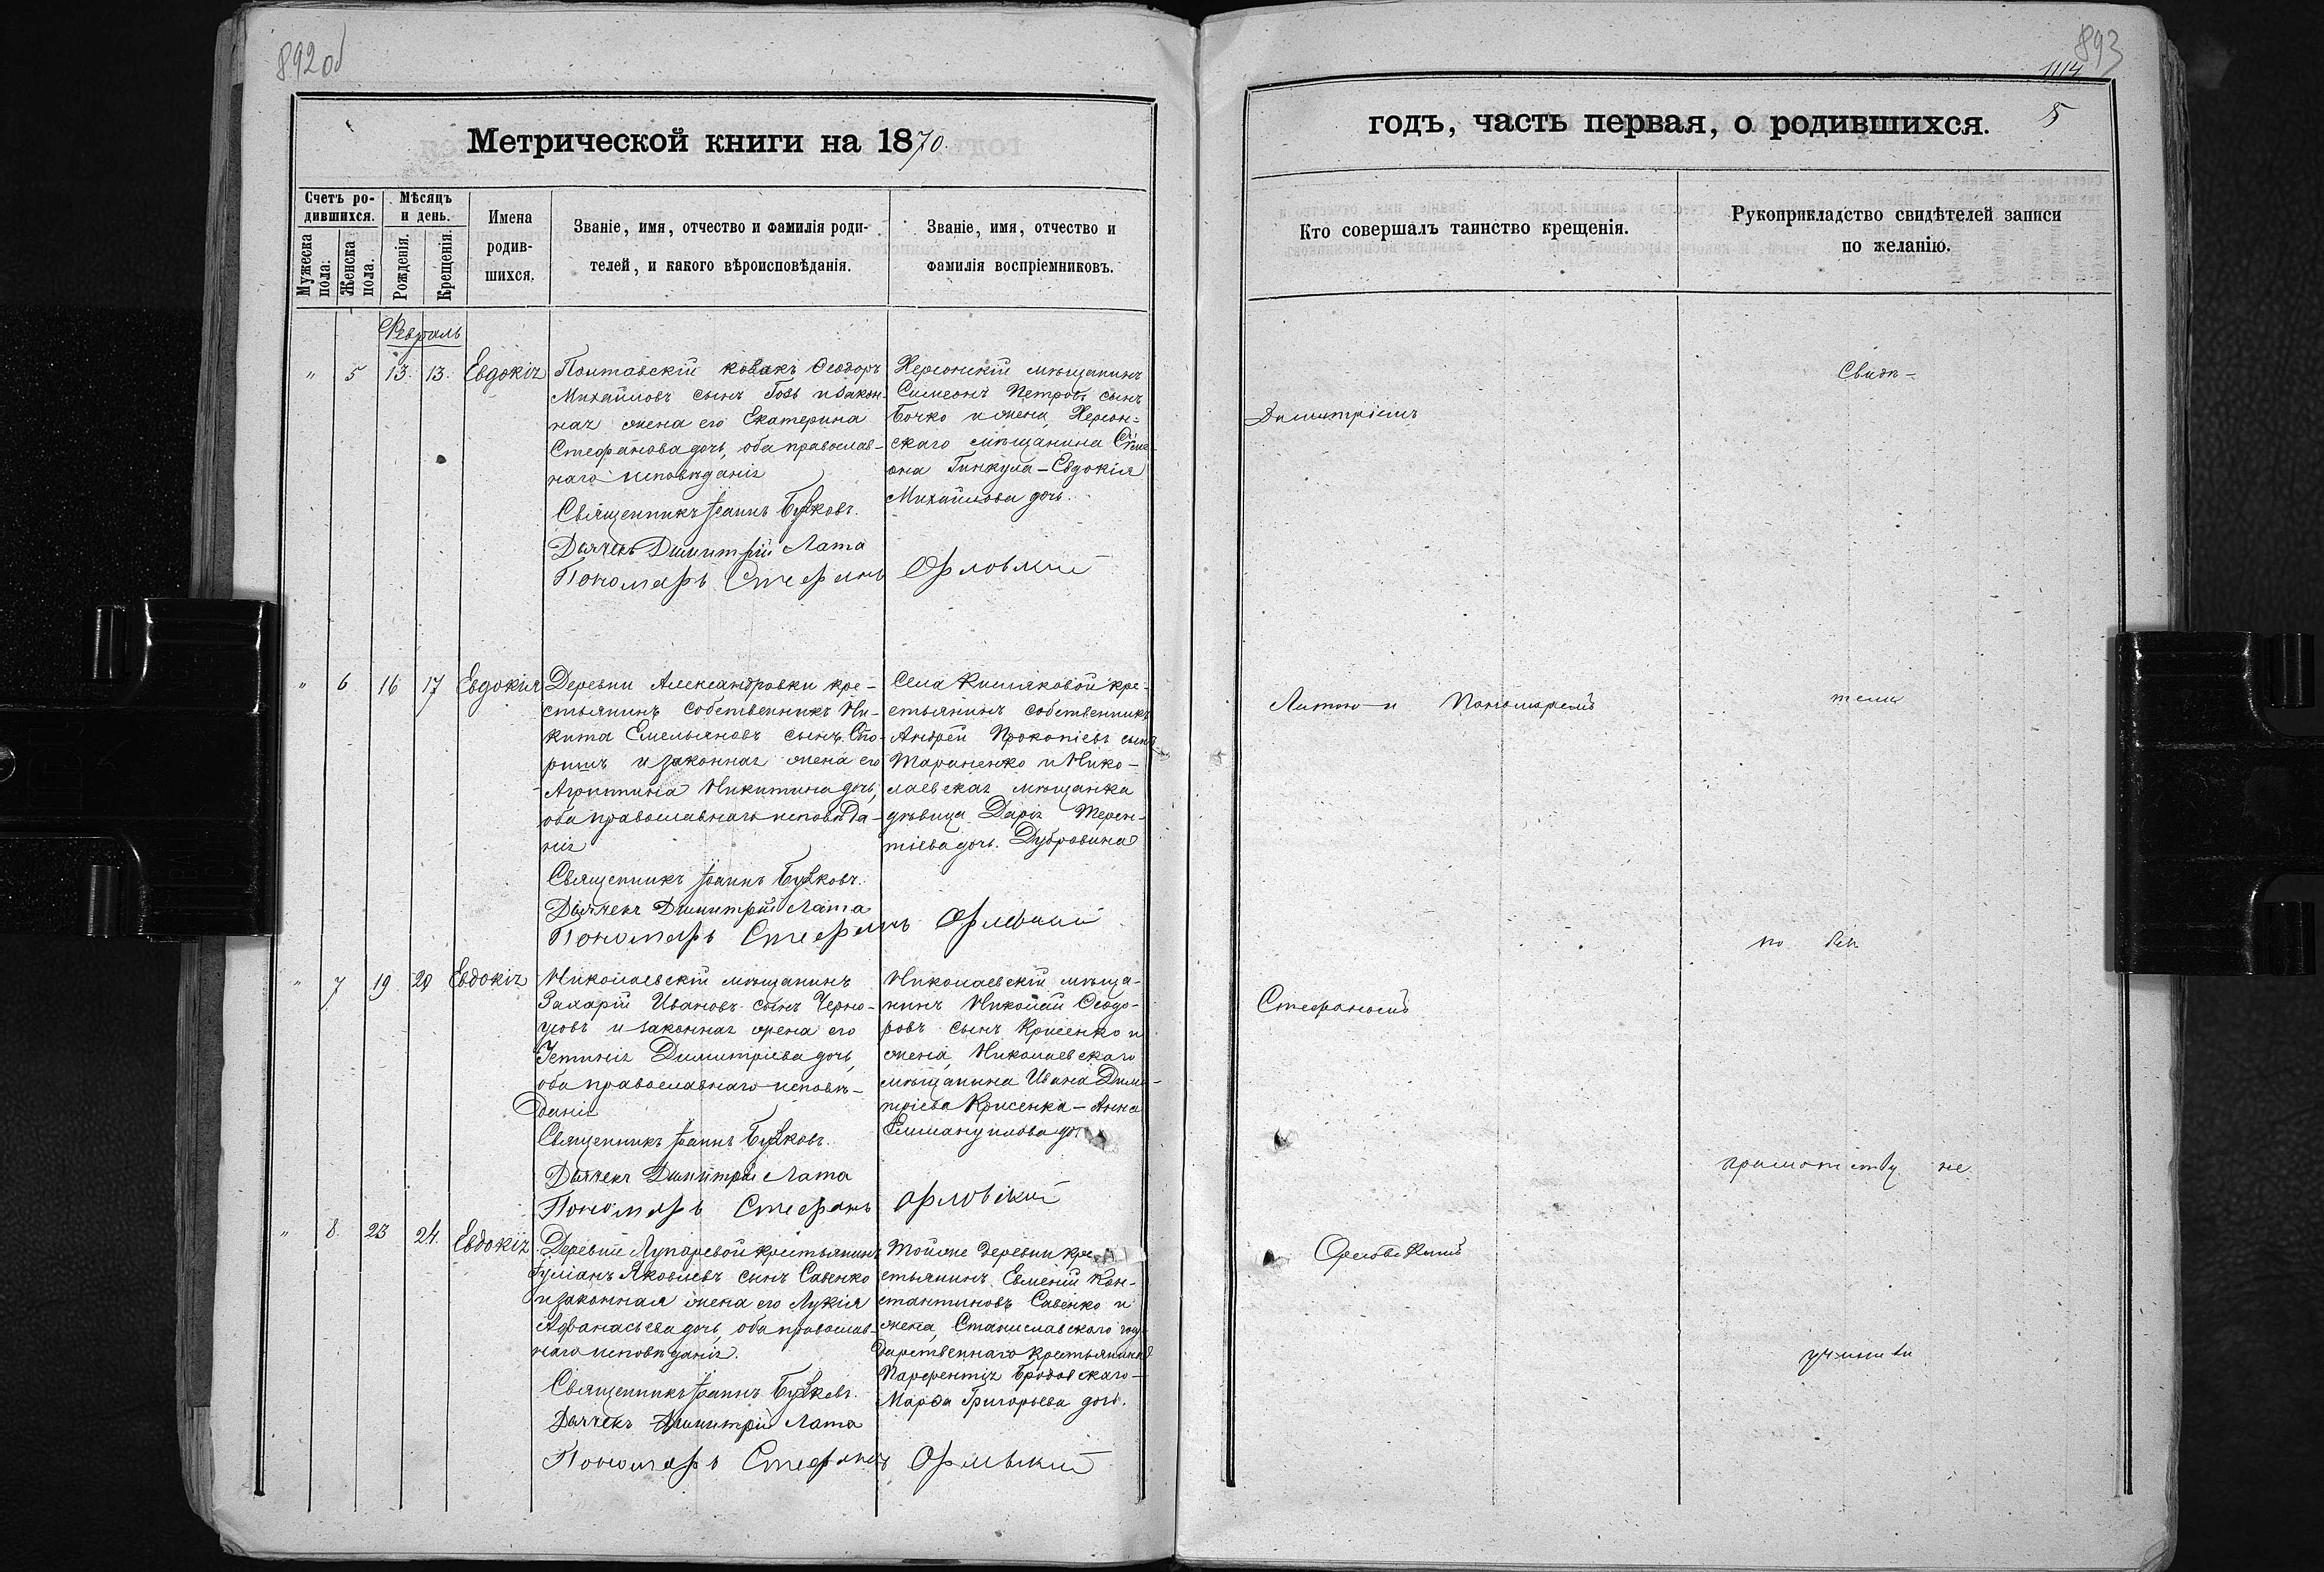 892 об
Метрической книги на 1870.
Счетъ ро-
дившихся.
Мѣсяцъ
и день.
Мужеска
пола:
Женска
пола.
Рожденія.
Крещенія.
Имена
родив-
шихся.
Званіе, имя, отчество и фамилія роди-
телей, и какого вѣроисповѣданія.
Званіе, имя, отчество и
фамилія воспріемниковъ.
Февраль
" 5 13. 13. Евдокія
Полтавскій козакъ Ѳеодоръ
Михайловъ сынъ Гозь и закон-
ная жена его Екатерина
Стефанова дочь, оба православ-
наго исповѣданія
Священникъ Іоаннъ Бузковъ.
Дьячекъ Димитрій Лата
Пономарь Стефанъ Орловскій
Херсонскій мѣщанинъ
Симеонъ Петровъ сынъ
Бочко и жена, Херсон-
скаго мѣщанина Симе-
она Гинкула - Евдокія
Михайлова дочь.
" 6 16 17 Евдокія
Деревни Александровки кре-
стьянинъ собственникъ Ни-
кита Емельяновъ сынъ
и законная жена его
Агриппина Никитина дочь,
оба православнаго исповѣда-
нія
Священникъ Іоаннъ Бузковъ.
Дьячекъ Димитрій Лата
Пономарь Стефанъ Орловскій
Села Кисляковой кре-
стьянинъ собственникъ
Андрей Прокопіевъ сынъ
Тараненко и Нико-
лаевская мѣщанка
дѣвица Дарія Терен-
тіева дочь. Дубровина
" 7 19 20 Евдокія
Николаевскій мѣщанинъ
Захарій Ивановъ сынъ Черно-
усовъ и законная жена его
Устинія Димитріева дочь,
оба православнаго исповѣ-
данія
Священникъ Іоаннъ Бузковъ.
Дьячекъ Димитрій Лата
Пономарь Стефанъ Орловскій
Николаевскій мѣща-
нинъ Николай Ѳеодо-
ровъ сынъ Крисенко и
жена, Николаевскаго
мѣщанина Ивана Дими-
тріева Крисенка - Анна
Еммануилова
" 8. 23 24. Евдокія
Деревни Лупаревой крестьянинъ
Іуліанъ Яковлевъ сынъ Савенко
и законная жена его Лукія
Аѳанасьева дочь, оба православ-
наго исповѣданія.
Священникъ Іоаннъ Бузковъ.
Дьячекъ Димитрій Лата
Пономарь Стефанъ Орловскій
Тойже деревни кре-
стьянинъ Евменій Кон-
стантиновъ Савенко и
жена, Станиславскаго госу-
дарственнаго крестьянина
Парфентія Бродовскаго -
Марѳа Григорьева дочь.
893
1114
5
годъ, часть первая, о родившихся.
Кто совершалъ таинство крещенія.
Рукоприкладство свидѣтелей записи
по желанію.
Димитріемъ
Латою и Пономаремъ
Стефаномъ
Орловскимъ
Свидѣ-
тели
по
грамотству не